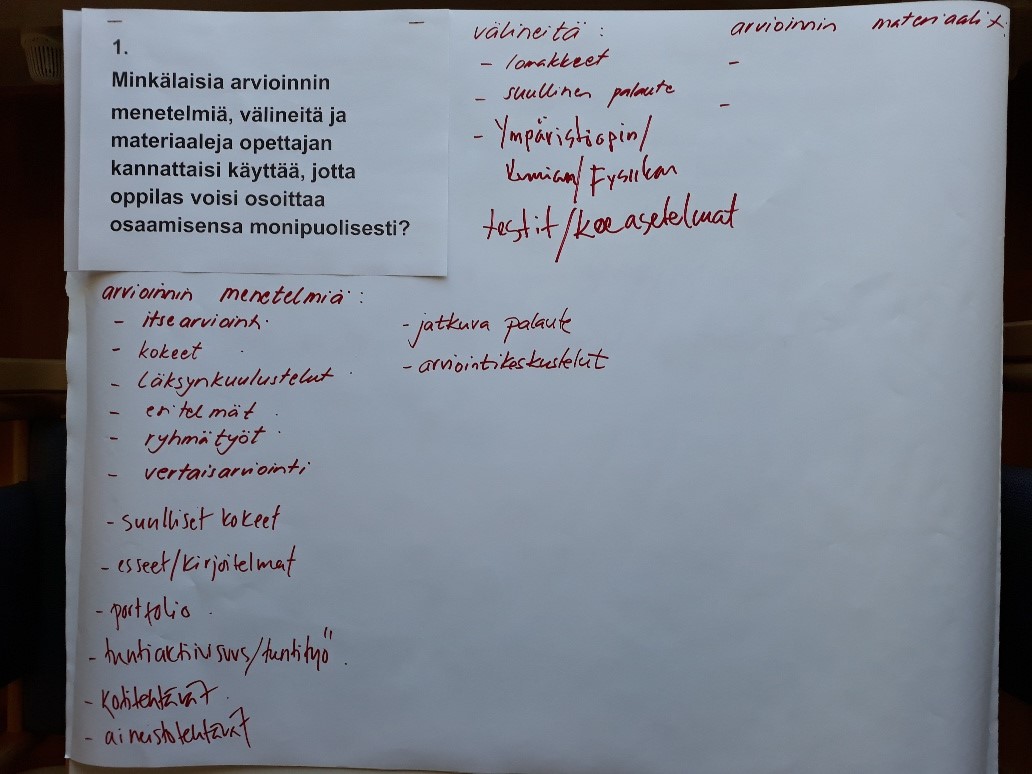 1.
Minkälaisia arvioinnin
menetelmiä, välineitä ja
materiaaleja opettajan
kannattaisi käyttää, jotta
oppilas voisi osoittaa
osaamisensa monipuolisesti?
välineitä :
- lomakkeet
- suullinen palaute
- Ympäristöopin/
Kemian/Fysiikan
testit/koeasetelmat
arvioinnin materiaalit:
-
-
arvioinnin menetelmiä :
- itsearviointi
- kokeet
- läksynkuulustelut
- esitelmät
- ryhmätyöt
- vertaisarviointi
- suulliset kokeet
- esseet/kirjoitelmat
- portfolio
- tuntiaktiivisuus/tuntityö
- kotitehtävät
- aineistotehtävät
- jatkuva palaute
- arviointikeskustelut